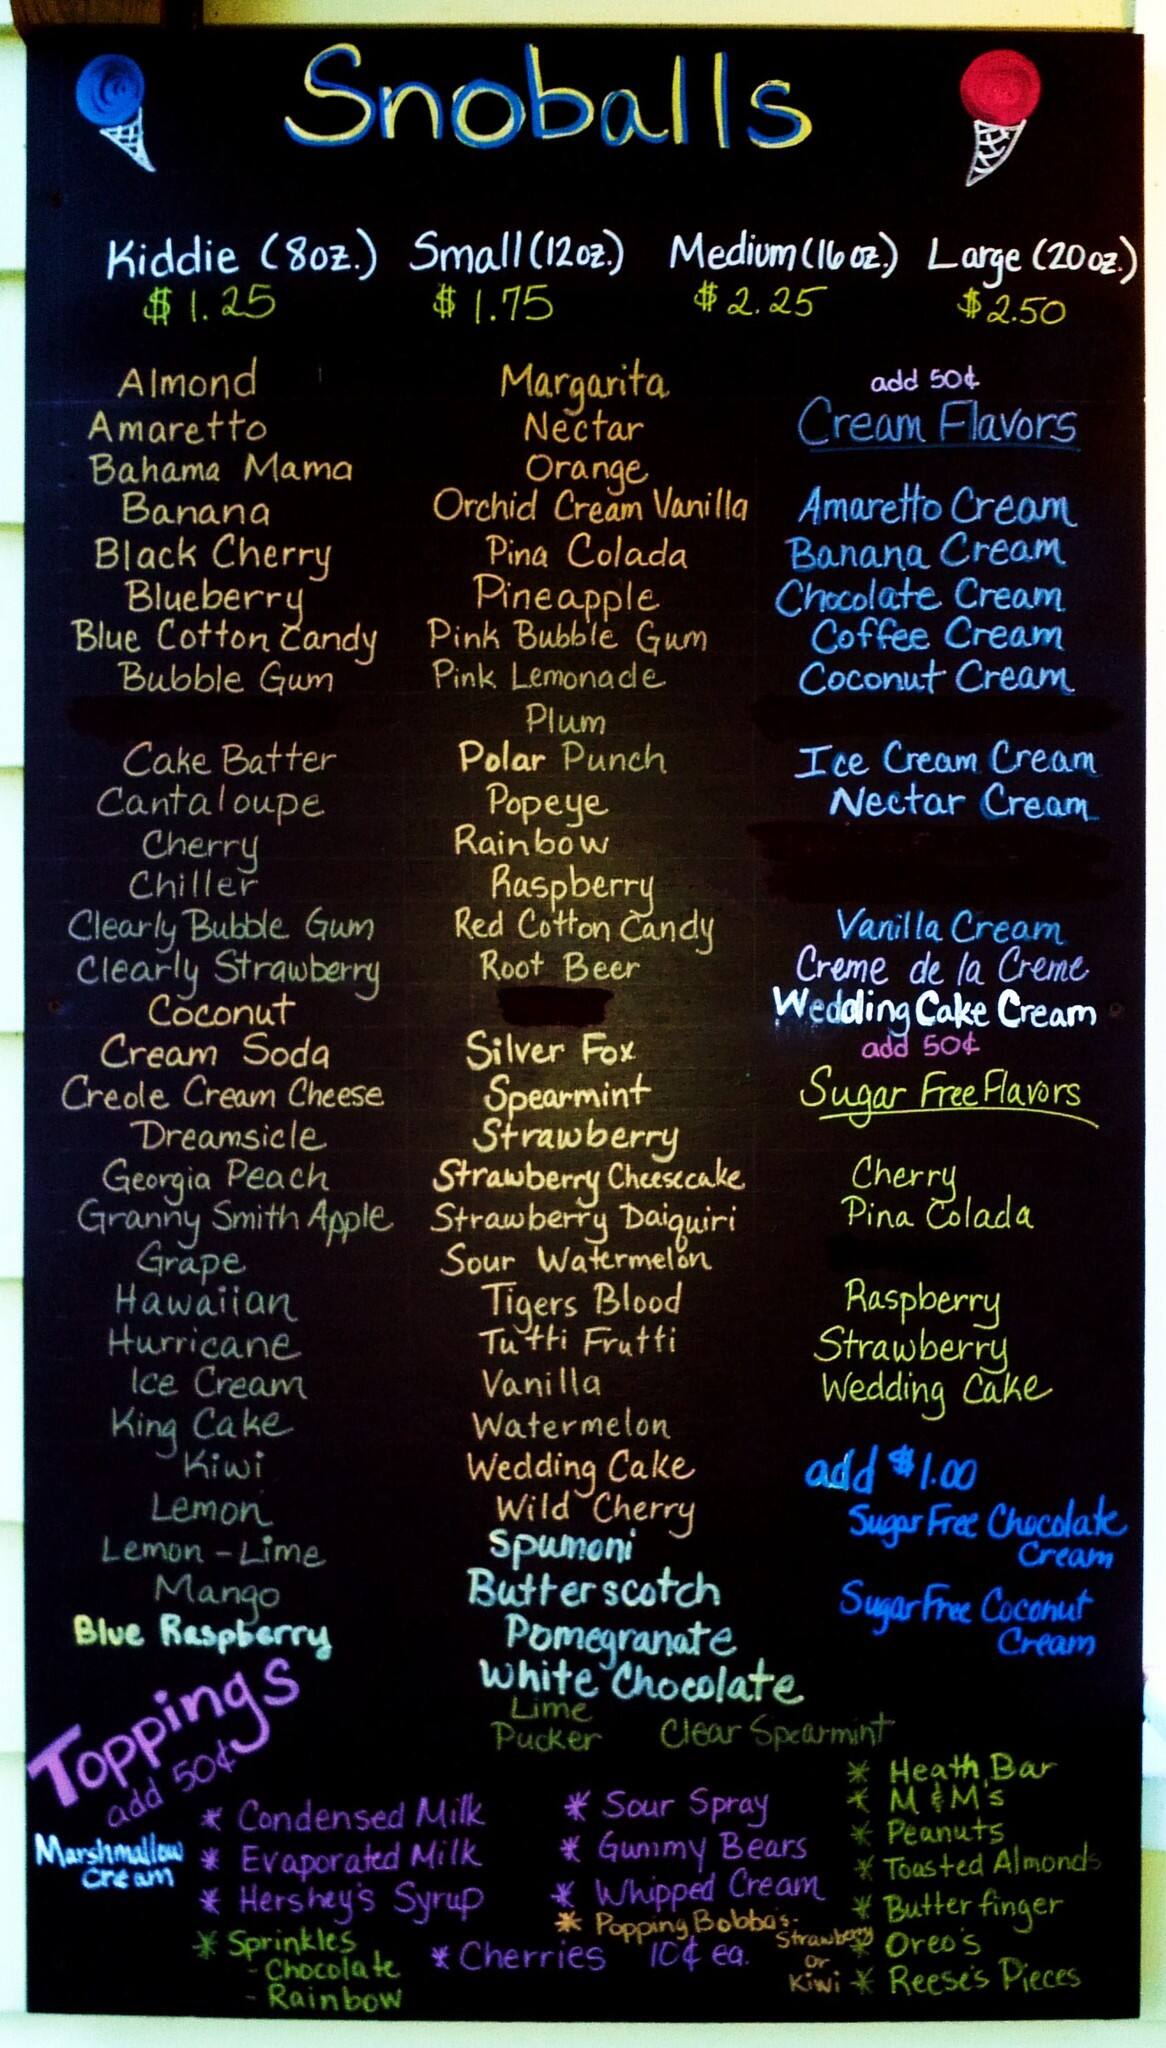 Snoballs
Kiddie (8oz.) Small (12oz.) Medium (16oz.) Large (20oz.)
$1.25 $1.75 $2.25 $2.50
Almond
Amaretto
Bahama Mama
Banana
Black Cherry
Blueberry
Blue Cotton Candy
Bubble Gum
Cake Batter
Cantaloupe
Cherry
Chiller
Clearly Bubble Gum
Clearly Strawberry
Coconut
Cream Soda
Creole Cream Cheese
Dreamsicle
Georgia Peach
Granny Smith Apple
Grape
Hawaiian
Hurricane
Ice Cream
King Cake
Kiwi
Lemon
Lemon-Lime
Mango
Blue Raspberry
Margarita
Nectar
Orange
Orchid Cream Vanilla
Pina Colada
Pineapple
Pink Bubble Gum
Pink Lemonade
Plum
Polar Punch
Popeye
Rainbow
Raspberry
Red Cotton Candy
Root Beer
Silver Fox
Spearmint
Strawberry
Strawberry Cheesecake
Strawberry Daiquiri
Sour Watermelon
Tigers Blood
Tutti Frutti
Vanilla
Watermelon
Wedding Cake
Wild Cherry
Spumoni
Butterscotch
Pomegranate
White Chocolate
Lime
Pucker
Clear Spearmint
add 50¢
Cream Flavors
Amaretto Cream
Banana Cream
Chocolate Cream
Coffee Cream
Coconut Cream
Ice Cream Cream
Nectar Cream
Vanilla Cream
Creme de la Creme
Wedding Cake Cream
add 50¢
Sugar Free Flavors
Cherry
Pina Colada
Raspberry
Strawberry
Wedding Cake
add $1.00
Sugar Free Chocolate
Cream
Sugar Free Coconut
Cream
Toppings
add 50¢
Marshmallow
Cream
* Condensed Milk
* Evaporated Milk
* Hershey's Syrup
* Sprinkles
- Chocolate
- Rainbow
* Sour Spray
* Gummy Bears
* Whipped Cream
* Popping Bobba's-
Strawberry
or
Kiwi
* Cherries 10¢ ea.
* Heath Bar
* M & M's
* Peanuts
* Toasted Almonds
* Butterfinger
* Oreo's
* Reese's Pieces